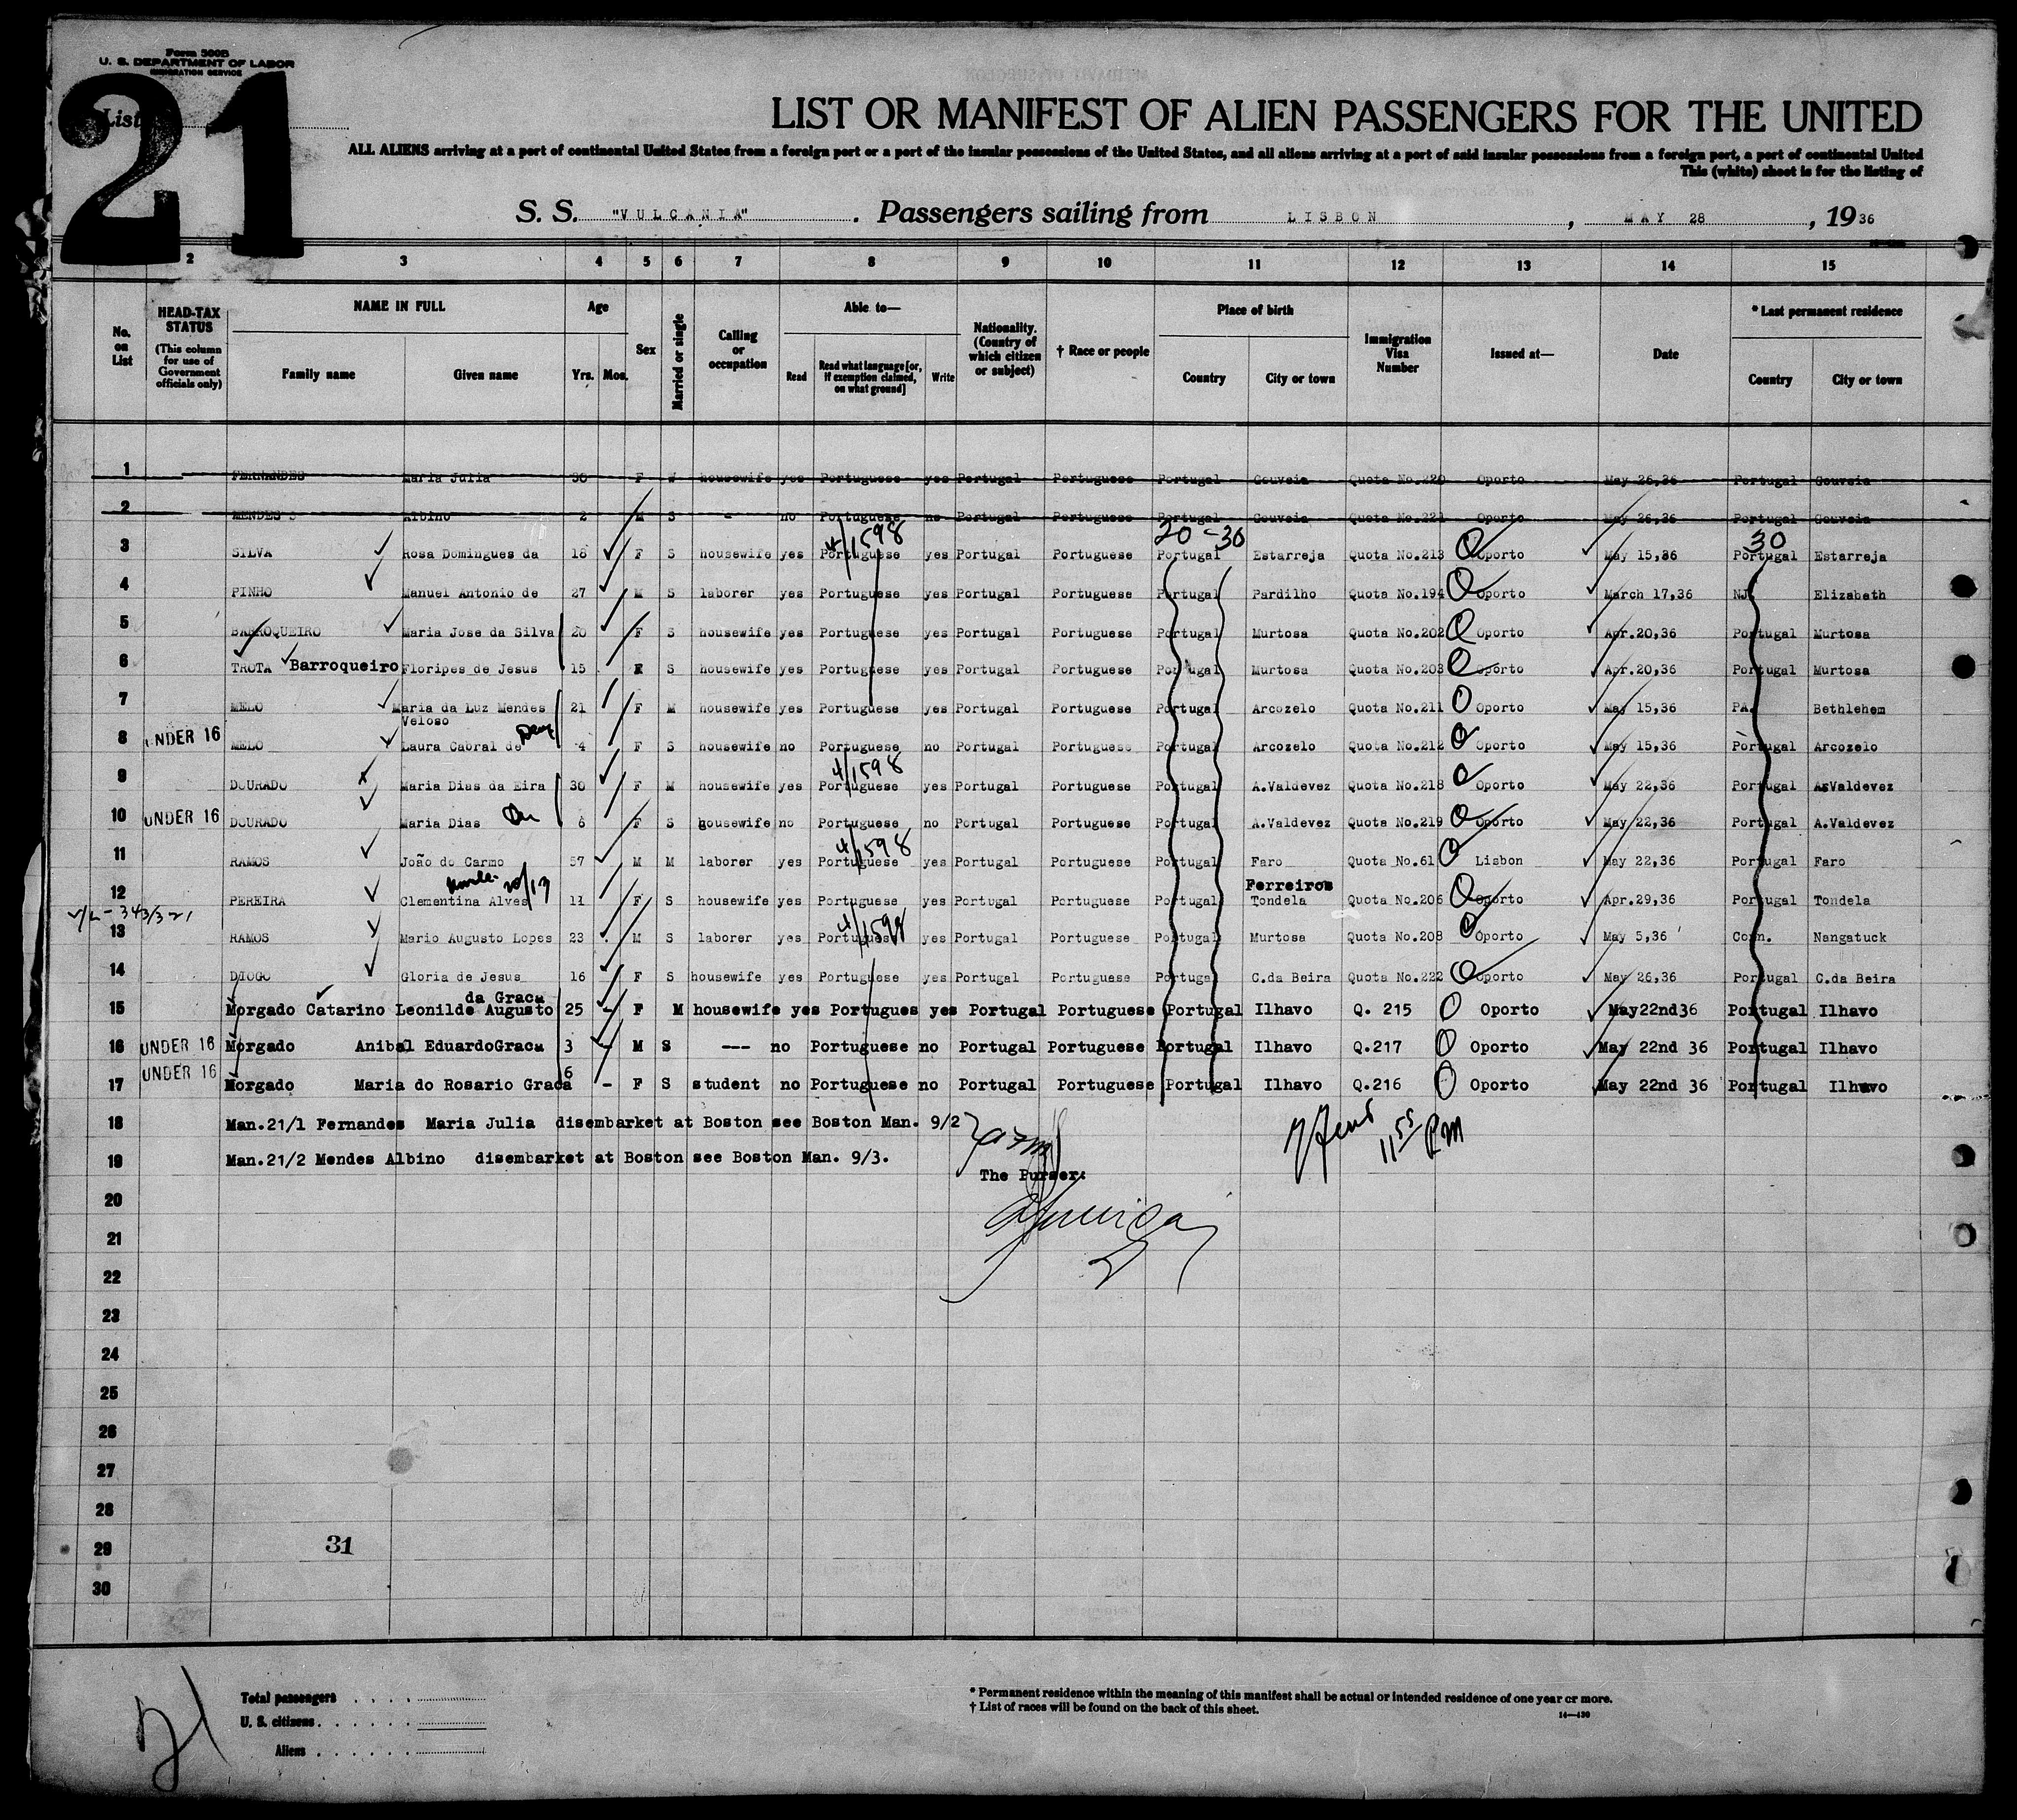 Form 500B
U. S. DEPARTMENT OF LABOR
IMMIGRATION SERVICE
21
List
LIST OR MANIFEST OF ALIEN PASSENGERS FOR THE UNITED
ALL ALIENS arriving at a port of continental United States from a foreign port or a port of the insular possessions of the United States, and all aliens arriving at a port of said insular possessions from a foreign port, a port of continental United
This (white) sheet is for the listing of
S. S. "VULCANIA". Passengers sailing from LISBON, MAY 28, 1936
2 3 4 5 6 7 8 9 10 11 12 13 14 15
No. on List
HEAD-TAX STATUS (This column for use of Government officials only)
NAME IN FULL Family name Given name
Age Yrs. Mos.
Sex
Married or single
Calling or occupation
Able to— Read Read what language [or, if exemption claimed, on what ground] Write
Nationality. (Country of which citizen or subject)
† Race or people
Place of birth Country City or town
Immigration Visa Number
Issued at—
Date
* Last permanent residence Country City or town
1 FERNANDES Maria Julia 30 F W housewife yes Portuguese yes Portugal Portuguese Portugal Gouveia Quota No.220 Oporto May 26,36 Portugal Gouveia
2 MENDES Albino 2 M S - no Portuguese no Portugal Portuguese Portugal Gouveia Quota No.221 Oporto May 26,36 Portugal Gouveia
4/1598 20-30 30
3 SILVA Rosa Domingues da 18 F S housewife yes Portuguese yes Portugal Portuguese Portugal Estarreja Quota No.213 Oporto May 15,36 Portugal Estarreja
4 PINHO Manuel Antonio de 27 M S laborer yes Portuguese yes Portugal Portuguese Portugal Pardilho Quota No.194 Oporto March 17,36 NJ. Elizabeth
5 BARROQUEIRO Maria Jose da Silva 20 F S housewife yes Portuguese yes Portugal Portuguese Portugal Murtosa Quota No.202 Oporto Apr.20,36 Portugal Murtosa
6 TROTA Barroqueiro Floripes de Jesus 15 F S housewife yes Portuguese yes Portugal Portuguese Portugal Murtosa Quota No.203 Oporto Apr.20,36 Portugal Murtosa
7 MELO Maria da Luz Mendes Veloso 21 F M housewife yes Portuguese yes Portugal Portuguese Portugal Arcozelo Quota No.211 Oporto May 15,36 PA. Bethlehem
8 UNDER 16 MELO Laura Cabral de 4 F S housewife no Portuguese no Portugal Portuguese Portugal Arcozelo Quota No.212 Oporto May 15,36 Portugal Arcozelo
4/1598
9 DOURADO Maria Dias da Eira 30 F M housewife yes Portuguese yes Portugal Portuguese Portugal A.Valdevez Quota No.218 Oporto May 22,36 Portugal A.Valdevez
10 UNDER 16 DOURADO Maria Dias 6 F S housewife no Portuguese no Portugal Portuguese Portugal A.Valdevez Quota No.219 Oporto May 22,36 Portugal A.Valdevez
4/1598
11 RAMOS João do Carmo 57 M M laborer yes Portuguese yes Portugal Portuguese Portugal Faro Quota No.61 Lisbon May 22,36 Portugal Faro
12 PEREIRA Clementina Alves 11 F S housewife yes Portuguese yes Portugal Portuguese Portugal Ferreiros Tondela Quota No.206 Oporto Apr.29,36 Portugal Tondela
4/1598
13 RAMOS Mario Augusto Lopes 23 M S laborer yes Portuguese yes Portugal Portuguese Portugal Murtosa Quota No.208 Oporto May 5,36 Conn. Nangatuck
14 DIOGO Gloria de Jesus 16 F S housewife yes Portuguese yes Portugal Portuguese Portugal C.da Beira Quota No.222 Oporto May 26,36 Portugal C.da Beira
15 Morgado Catarino Leonilde Augusto da Graca 25 - F M housewife yes Portugues yes Portugal Portuguese Portugal Ilhavo Q. 215 Oporto May22nd36 Portugal Ilhavo
16 UNDER 16 Morgado Anibal EduardoGraca 3 - M S --- no Portuguese no Portugal Portuguese Portugal Ilhavo Q.217 Oporto May 22nd 36 Portugal Ilhavo
17 UNDER 16 Morgado Maria do Rosario Graca 6 - F S student no Portuguese no Portugal Portuguese Portugal Ilhavo Q.216 Oporto May 22nd 36 Portugal Ilhavo
18 Man.21/1 Fernandes Maria Julia disembarket at Boston see Boston Man. 9/2
19 Man.21/2 Mendes Albino disembarket at Boston see Boston Man. 9/3.
11 55 PM
The Purser:
20
21
22
23
24
25
26
27
28
29 31
30
21
Total passengers . . . .
U. S. citizens . . . . . .
Aliens . . . . . .
* Permanent residence within the meaning of this manifest shall be actual or intended residence of one year or more.
† List of races will be found on the back of this sheet.
14—430